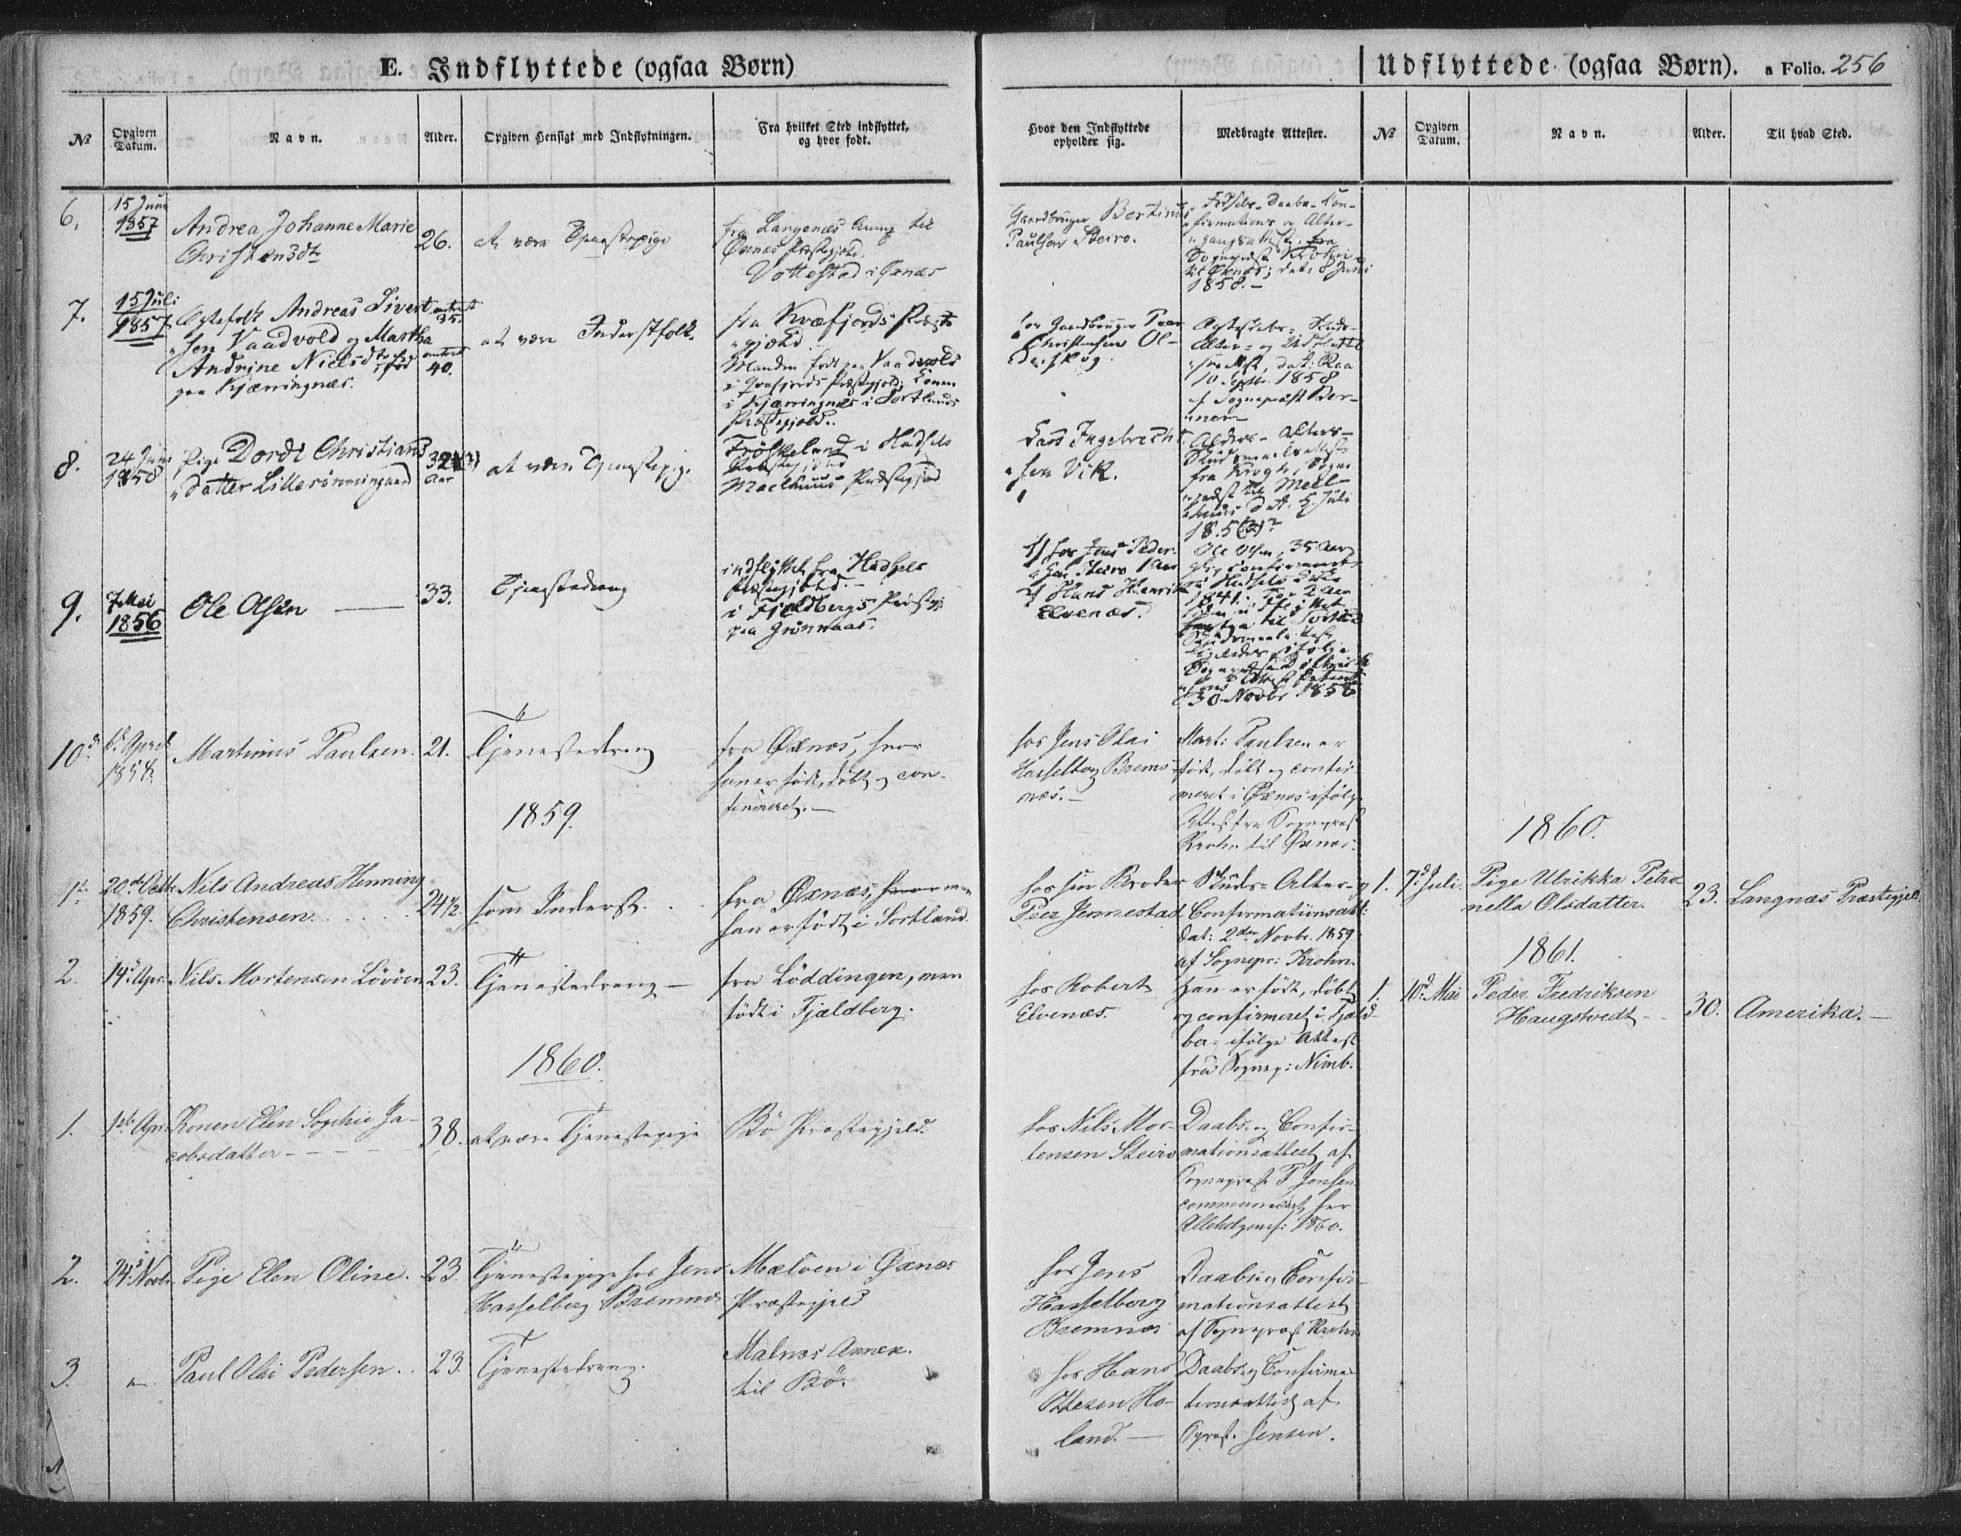 E. Indflyttede (ogsaa Børn)
Udflyttede (ogsaa Børn). a Folio. 256
№
Opgiven Datum.
Navn.
Alder.
Opgiven Hensigt med Indflytningen.
Fra hvilket Sted indflyttet,
og hvor født.
Hvor den Indflyttede
opholder sig.
Medbragte Attester.
№
Opgiven
Datum.
Navn.
Alder.
Til hvad Sted.
6.
15 Juni
1857
Andrea Johanne Marie
Christensdtr
26.
at være Tjenestepige
fra Langenæs Annex til
Øxnæs Præstegjeld.
Vottestad i Øxnæs
Gaardbruger Bertinus
Paulsen Steiro.
Fødsels- Daabs- Con-
firmations og Alter-
Sognepræst Krohn
til Øxnæs; dat. 8 Juni
1858.-
7.
15 Juli
1857
Ægtefolk Andreas Sivert
sen Vaadvold og Martha
Andrine Nielsdtr
paa Kjærringnæs.
35.
40.
at være Inderstfolk.
fra Kvæfjords Præste
gjæld
Manden født paa Vaadvold
i Qvæfjords Præstegjeld; Konen
i Kjærringnæs i Sortlands
Præstegjæld.
hos Gaardbruger Peer
Christensen Ol-
derskog.
10 Septbr. 1858
f Sognepræst Ber-
ner
8.
24 Juni
1858
Pige Dordi Christians
datter Lillerønningaand
32
Aar
at være Tjenestepige
Frøskeland i Hadsels
Præstegjeld
Maelhuus Præstegjeld
Lars Ingebrecht
sen Vik.
Alders- Alters-
fra Krogh, Sogne
præst til Meel-
huus dat. 5 Juli
185(2)?
9.
7 Mai
1856
Ole Olsen
33.
Tjenestedreng
indflyttet fra Hadsels
Præstegjeld.-
i Fjeldbergs Præstegj
paa Grønnaas.
1/ hos Jens Peder-
sen Steiro 1 Aar
2/ Hans Henrik
Elvenæs.
Ole Olsen, 35 Aar,
30 Novbr. 1858
10.
6te April
1858.
Martinus Paulsen.
21.
Tjenestedreng
fra Øxnæs, hvor
han er født, døbt og con-
firmeret.-
hos Jens Olai
Hasselberg Brems-
næs.-
Mart: Paulsen er
født, døbt og confir-
meret i Øxnæs ifølge
Attest fra Sognepræst
Krohn til Øxnæs.
1859.
1860.
1.
20de Octbr.
1859.
Nils Andreas Henning
Christensen.
24½.
som Inderst.
fra Øxnæs, hvor men
han er født i Sortland.
hos sin Broder
Peer Jennestad
Skuds- Alter- og
Confirmationsatt:
dat: 2den Novbr. 1859
af Sognepr: Krohn.
1.
7de Juli.
Pige Ulrikka Petro-
nella Olsdatter.
23.
Langnæs Præstegjeld.
1861.
2.
14de Apr.
Nils Mortensen Lövöen
23.
Tjenestedreng -
fra Löddingen, men
født i Fjeldberg.
hos Robert
Elvenæs.
Han er født, døbt
og confirmeret i Fjeld-
ber- ifølge Attest
fra Sognep: Nimb.
1.
10de Mai
Peder Fredriksen
Haugstvedt
30.
Amerika.-
1860.
1.
1ste Apr.
Konen Elen Sophie Ja-
cobsdatter
38.
at være Tjenestepige
Bö Præstegjeld.
hos Nils Mor-
tensen Steiro
Daabs- og Confir-
mationsattest af
Sognepræst P Jensen
communicert her
Allehelgensf: 1860.
2.
24de Novbr.
Pige Elen Oline.
23.
Tjenestepige hos Jens
Hasselberg Bremnæs
Mælöen i Øxnæs
Præstegjeld
hos Jens
Hasselberg
Bremnæs
Daabs og Confir-
mationsattest
af Sognepræst Krohn
3.
Paul Olai Pedersen.
23
Tjenestedreng.
Malnæs Annex
til Bö.
hos Hans
Ottesen Ho-
land.-
Daabs- og Confirma-
tionsattest af
Spræst. Jensen.